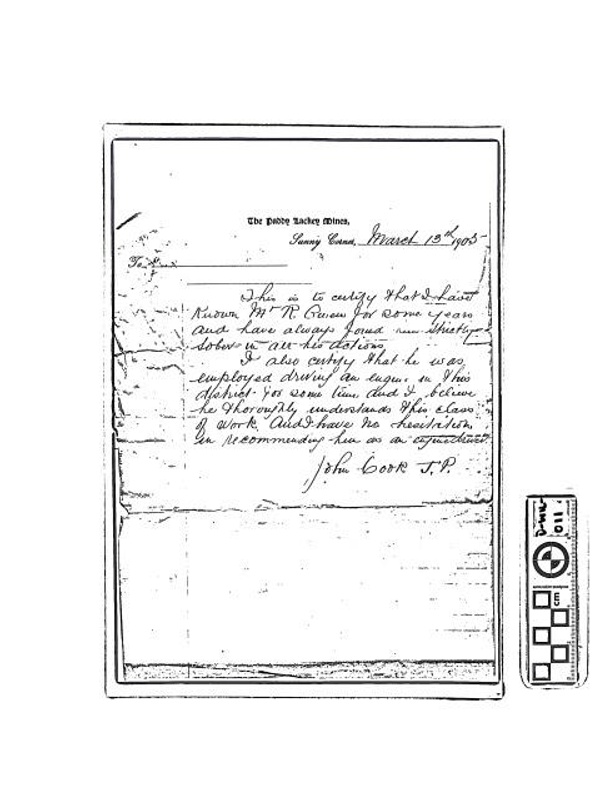 The Paddy Lackey Mines,
Sunny Corner, March 13th 1905
To
This is to certify that I have
Known Mr R. for some years
and have always found him strictly
sober in all his actions
I also certify that he was
employed driving an engine in this
district for some time and I believe
he thoroughly understands this class
of work. And I have no hesitation
in recommending him as an
John Cook J.P.
011
cm